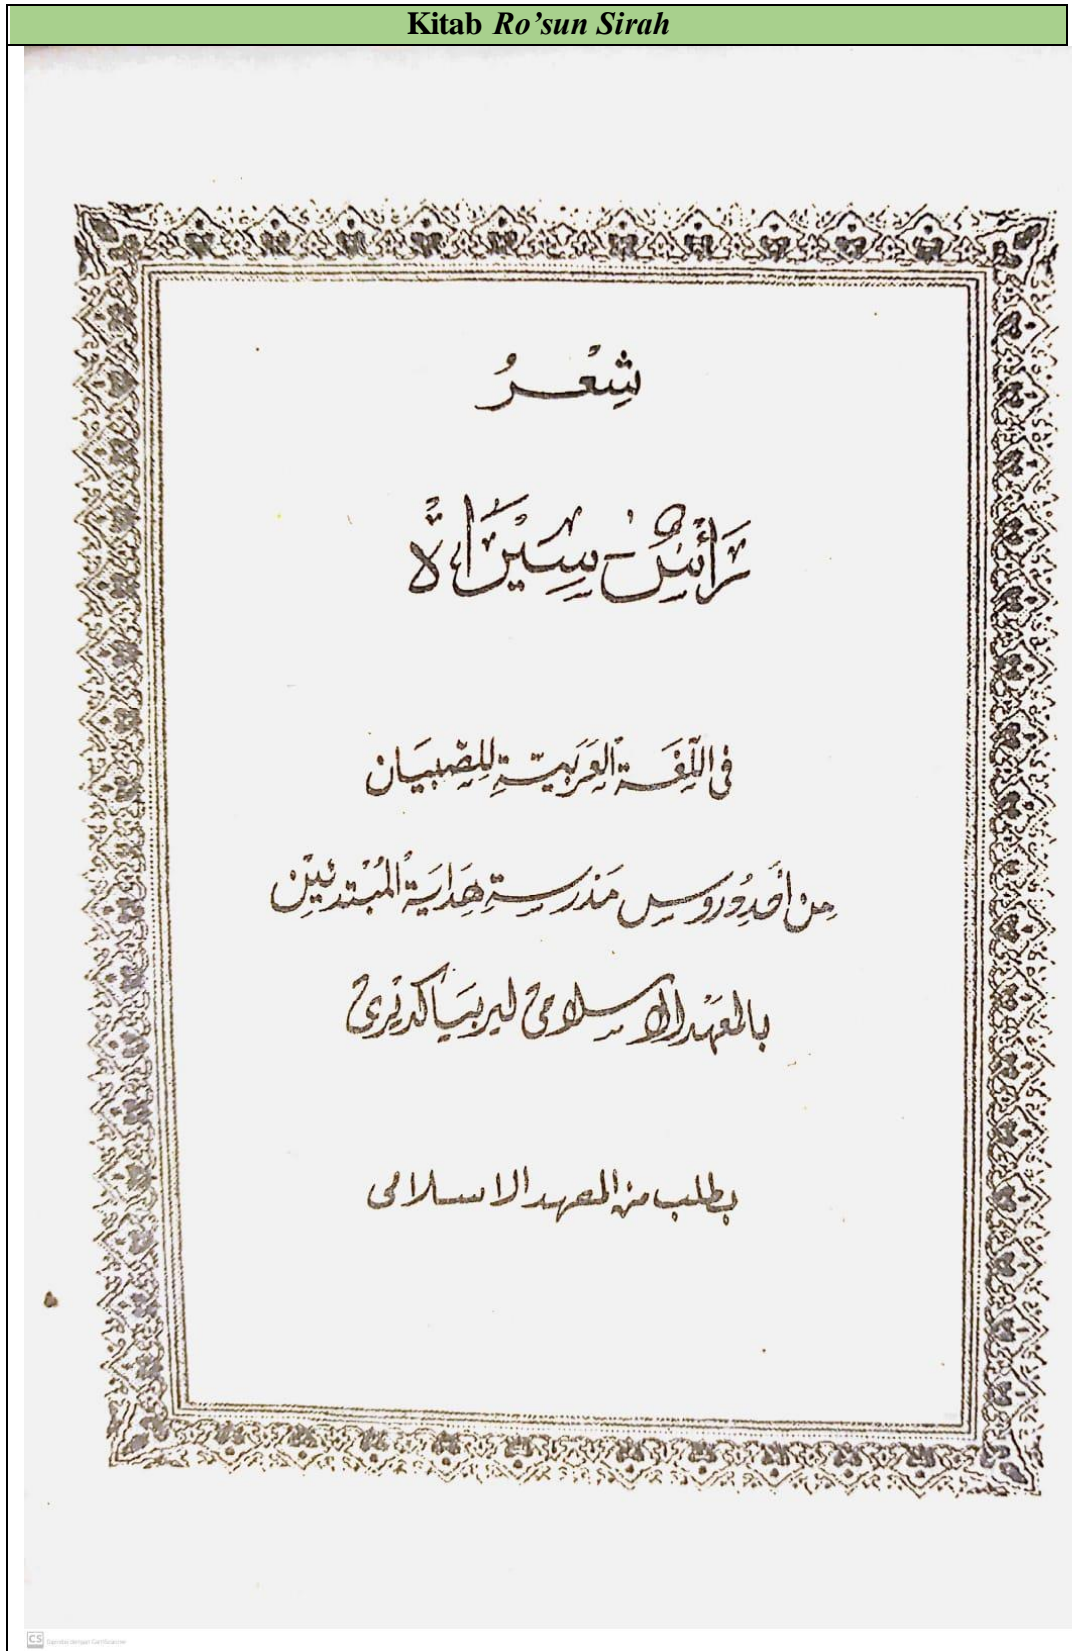 Kitab Ro’sun Sirah
شِعْرُ
رَأْسٌ - سِيْرَاهْ
فى اللُّغَةِ الْعَرَبِيَّةِ لِلصِّبْيَان
مِنْ أَحَدِ دُرُوسِ مَدْرَسَةِ هِدَايَةِ الْمُبْتَدِئِيْن
بِالْمَعْهَدِ الْاِسْلَامِى لِيربَيَا كدِيْرِى
يطلب من المعهد الاسلامى
CS Dipindai dengan CamScanner